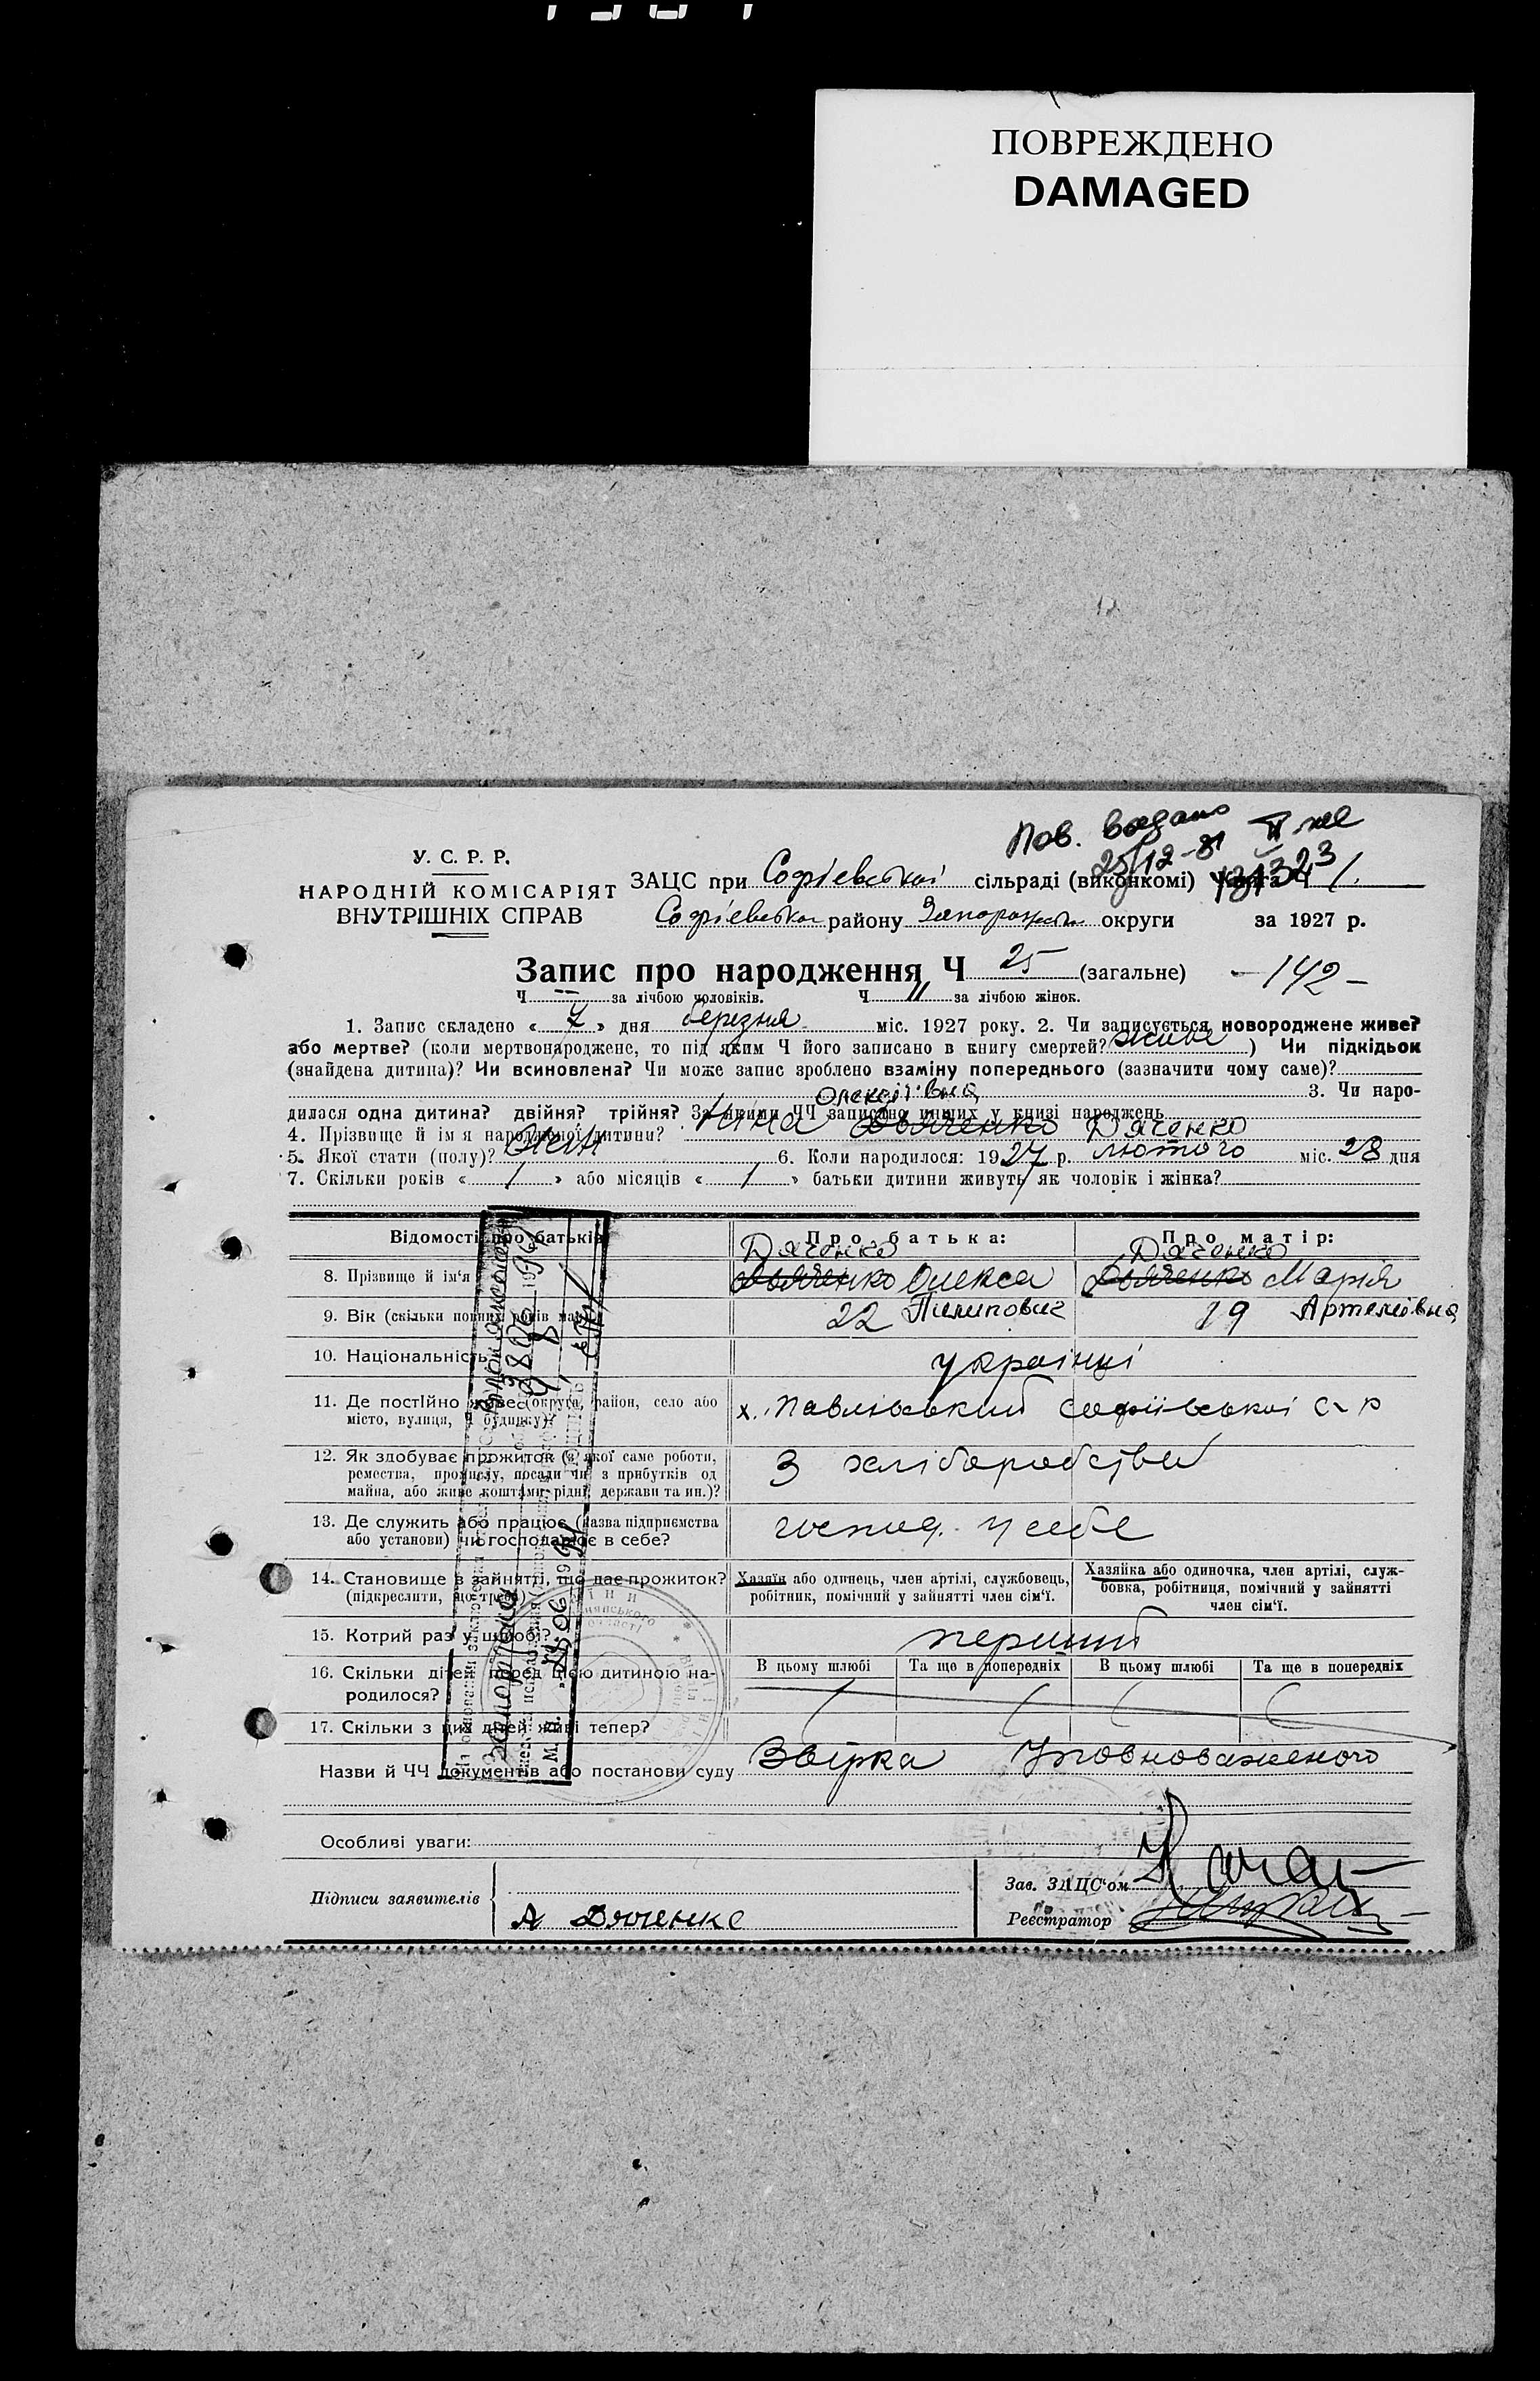 ПОВРЕЖДЕНО
DAMAGED
Пов. видано
25/12-81
У. С. Р. Р.
НАРОДНІЙ КОМІСАРІЯТ
ВНУТРІШНІХ СПРАВ
ЗАЦС при Софієвської сільраді (виконкомі)
Софієвськ району Запорожськ округи за 1927 р.
Запис про народження Ч 25 (загальне) - 142 -
Ч за лічбою чоловіків. Ч 11 за лічбою жінок.
1. Запис складено « 7 » дня березня міс. 1927 року. 2. Чи записується новороджене живе?
або мертве? (коли мертвонароджене, то під яким Ч його записано в книгу смертей? живе ) Чи підкідьок
(знайдена дитина)? Чи всиновлена? Чи може запис зроблено взаміну попереднього (зазначити чому саме)?
Олексіївна 3. Чи наро-
дилася одна дитина? двійня? трійня? За якими ЧЧ записано инших у книзі народжень
4. Прізвище й ім'я народженої дитини? Ніна Дьяченко Дяченко
5. Якої стати (полу)? жін 6. Коли народилося: 1927 р. лютого міс. 28 дня
7. Скільки років « / » або місяців « / » батьки дитини живуть як чоловік і жінка?
Відомості про батьків Про батька: Про матір:
Дяченко Дяченко
8. Прізвище й ім'я Дьяченко Олекса Дьяченко Марія
9. Вік (скільки повних років має) 22 Пилипович 19 Артемівна
10. Національність українці
11. Де постійно живе (округа, район, село або
місто, вулиця, Ч будинку)? х. Павлівський Софіївської с-р
12. Як здобуває прожиток (з якої саме роботи,
ремества, промислу, посади чи з прибутків од
майна, або живе коштами рідні, держави та ин.)? З хліборобства
13. Де служить або працює (назва підприємства
або установи) чи господарює в себе? господ. у себе
14. Становище в зайнятті, що дає прожиток?
(підкреслити, що треба)
Хазяїн або одинець, член артілі, службовець,
робітник, помічний у зайнятті член сім'ї.
Хазяйка або одиночка, член артілі, служ-
бовка, робітниця, помічний у зайнятті
член сім'ї.
15. Котрий раз у шлюбі? перший
16. Скільки дітей перед цією дитиною на-
родилося?
В цьому шлюбі Та ще в попередніх В цьому шлюбі Та ще в попередніх
17. Скільки з цих дітей живі тепер?
Назви й ЧЧ документів або постанови суду Звірка Уповноваженого
Особливі уваги:
Підписи заявителів
А Дяченко
Зав. ЗАЦС'ом
Реєстратор